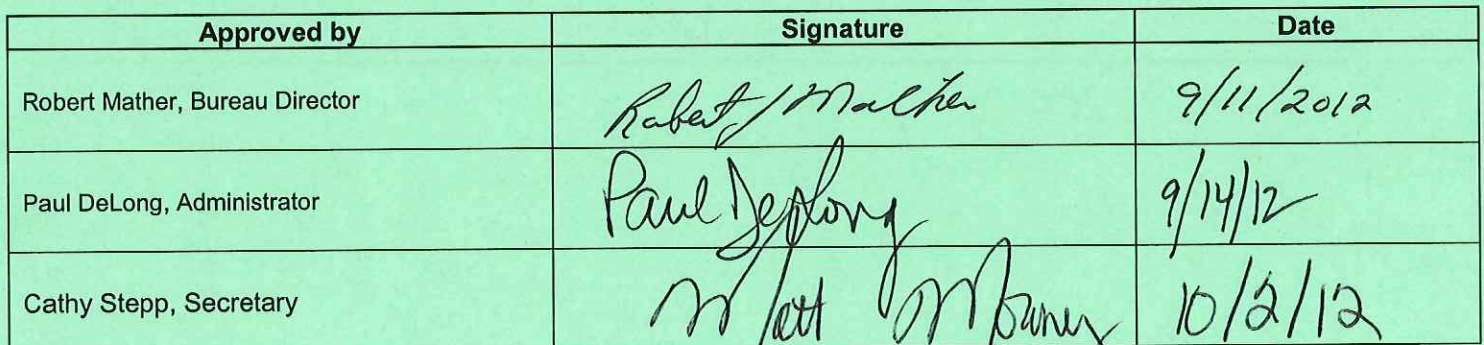 Approved by Signature Date
Robert Mather, Bureau Director Robert J Mather 9/11/2012
Paul DeLong, Administrator Paul DeLong 9/14/12
Cathy Stepp, Secretary Matt 10/2/12